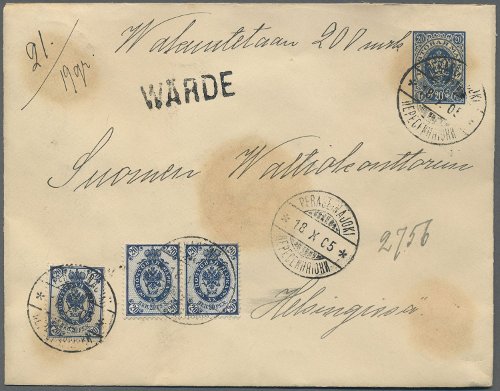 21.
19 gr.
Wakuutetaan 200 mrk
WÄRDE
20 20
Suomen Waltiokonttoriin
PERÄSEINÄJOKI
18 X 05
ПЕРЕСЕЙНІОКИ
2756
Helsingissä